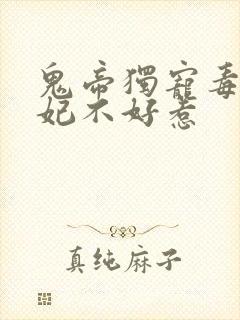 鬼帝獨寵毒
妃不好惹
真纯麻子